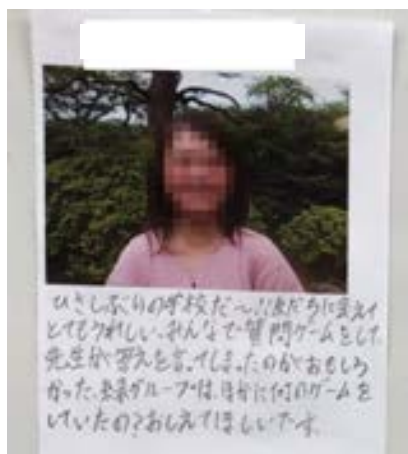 ひさしぶりの学校だ〜!!友だちに会えて
とてもうれしい。みんなで質問ゲームをして、
先生が答えを言ってしまったのがおもしろ
かった。グループは、ほかに何のゲームを
していたの?おしえてほしいです。